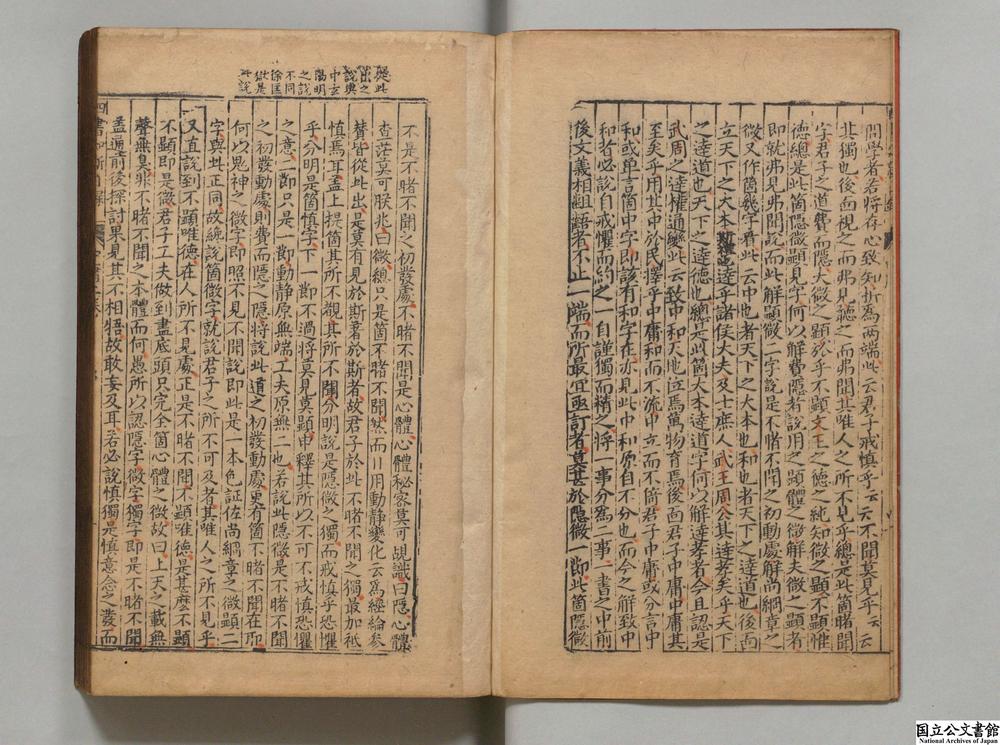 問學者若將存心致知折爲兩端此云君子戒慎乎云云不聞莫見乎云云
其獨也後面視之而弗見聽之而弗聞其唯人之所不見乎總是此箇睹聞
字君子之道費而隱夫微之顯於乎不顯文王之德之純知微之顯不顯惟
德總是此箇隱微顯見字何以解費隱者說用之顯體之微解夫微之顯者
即就弗見弗聞說而此解顯微二字說是不睹不聞之初動處解尚綱章之
微又作箇幾字看此云中也者天下之大本也和也者天下之達道也後面
立天下之大本達乎諸侯大夫及士庶人武王周公其達孝矣乎天下
之達道也天下之達德也總是此箇大本達道字何以解達孝者今且認是
武周之達權通變此云致中和天地位焉萬物育焉後面君子中庸中庸其
至矣乎用其中於民擇乎中庸和而不流中立而不倚君子中庸或分言中
和或單言箇中字即該有和字在亦見此中和原自不分也而今之解致中
和者必說自戒懼而約之一自謹獨而精之將一事分爲二事一書之中前
後文義相齟齬者不止一端而所最宜亟訂者莫甚於隱微一節此箇隱微
不是不睹不聞之初發處不睹不聞是心體心體秘密莫可覘識曰隱心體
查茫莫可朕兆曰微總只是箇不睹不聞然而日用動靜變化云爲經綸參
贊皆從此出是莫有見於斯著於斯者故君子於此不睹不聞之獨最加祗
慎焉耳盖上提箇其所不覩其所不聞分明說是隱微之獨而戒慎乎恐懼
乎分明是箇慎字下一節不過將莫見莫顯申釋其所以不可不戒慎恐懼
之意二節只是一節動靜原無端工夫原無二也若說此隱微是不睹不聞
之初發動處則費而隱之隱將說此道之初發動處更有箇不睹不聞在耶
何以鬼神之微字即照不見不聞說即此是一本色証佐尚綱章之微顯二
字與此正同故纔說箇微字就說君子之所不可及者其唯人之所不見乎
又直說到不顯唯德在人所不見處正是不睹不聞不顯唯德是甚麽不顯
不顯即是微君子工夫做到盡底頭只完全箇心體之微故曰上天之載無
聲無臭非不睹不聞之本體而何愚所以認隱字微字獨字即是不睹不聞
盖遍前後探討果見其不相牾故敢妄及耳若必說慎獨是慎意念之發而
從此
出之
說與
中玄
陽明
之說
不同
徐匡
嶽是
此說
国立公文書館
National Archives of Japan